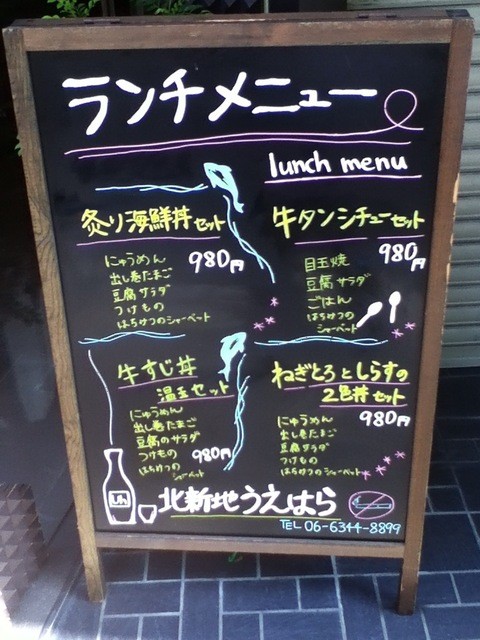 ランチメニュー
lunch menu
炙り海鮮丼セット
980円
にゅうめん
出し巻たまご
豆腐サラダ
つけもの
はちみつのシャーベット
牛タンシチューセット
980円
目玉焼
豆腐サラダ
ごはん
はちみつの
シャーベット
牛すじ丼
温玉セット
にゅうめん
出し巻たまご
豆腐のサラダ
つけもの
980円
はちみつの
シャーベット
ねぎとろとしらすの
2色丼セット
980円
にゅうめん
出し巻たまご
豆腐サラダ
つけもの
はちみつのシャーベット
北新地うえはら
TEL 06-6344-8899